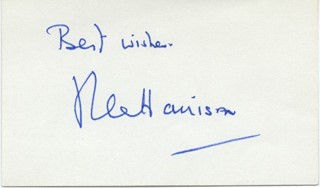 Best wishes.
Harrison